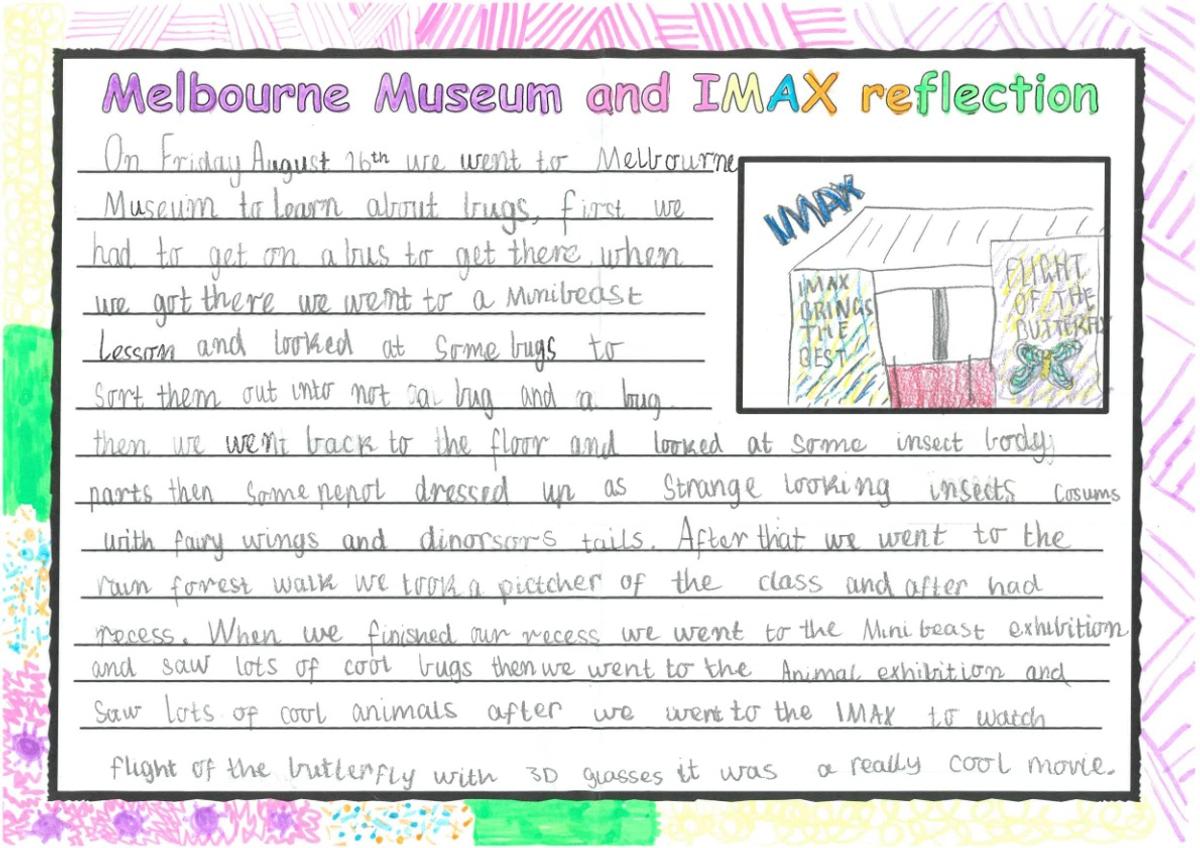 Melbourne Museum and IMAX reflection
On Friday August 16th we went to Melbourne
Museum to learn about bugs, first we
had to get on a bus to get there when
we got there we went to a Minibeast
Lesson and looked at some bugs to
Sort them out into not a bug and a bug
then we went back to the floor and looked at some insect body
parts then some pepol dressed up as Strange looking insects cosums
with fairy wings and dinorsors tails. After that we went to the
rain forest walk we took a pictcher of the class and after had
recess. When we finished our recess we went to the Mini beast exhibition
and saw lots of cool bugs then we went to the Animal exhibition and
Saw lots of cool animals after we went to the IMAX to watch
flight of the butterfly with 3D glasses it was a really cool movie.
IMAX
IMAX
BRINGS
THE
BEST
FLIGHT
OF THE
BUTTERFLY